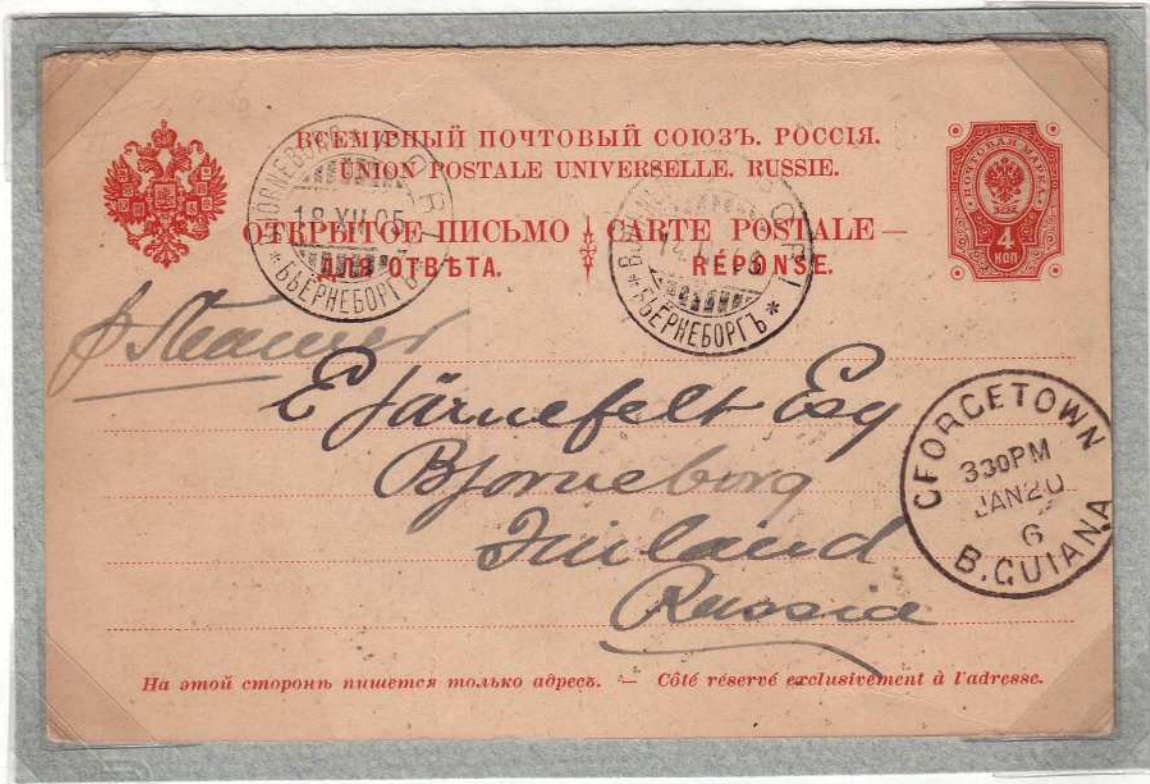 ВСЕМІРНЫЙ ПОЧТОВЫЙ СОЮЗЪ. РОССІЯ.
UNION POSTALE UNIVERSELLE. RUSSIE.
ОТКРЫТОЕ ПИСЬМО CARTE POSTALE
ДЛЯ ОТВѢТА. RÉPONSE.
ПОЧТОВАЯ МАРКА
4
КОП
BJÖRNEBORG PORI
18.XII.05
* БЬЕРНЕБОРГЪ *
PORI
* БЬЕРНЕБОРГЪ *
p. Steamer
E Järnefelt Esq
Bjorneborg
Finland
Russia
GEORGETOWN
330PM
JAN 20
6
B.GUIANA
На этой сторонѣ пишется только адресъ. — Côté réservé exclusivement à l'adresse.